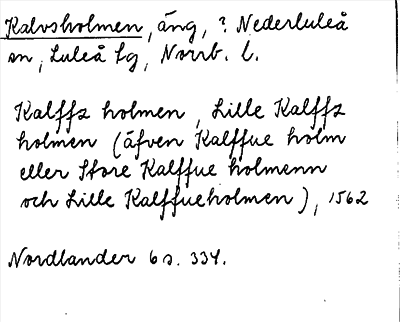 Kalvsholmen, äng, ? Nederluleå
sn, Luleå tg, Norrb. l.
Kalffz holmen, Lille Kalffz
holmen (äfven Kalffue holm
eller Store Kalffue holmenn
och Lille Kalffueholmen), 1562
Nordlander 6 s. 334.